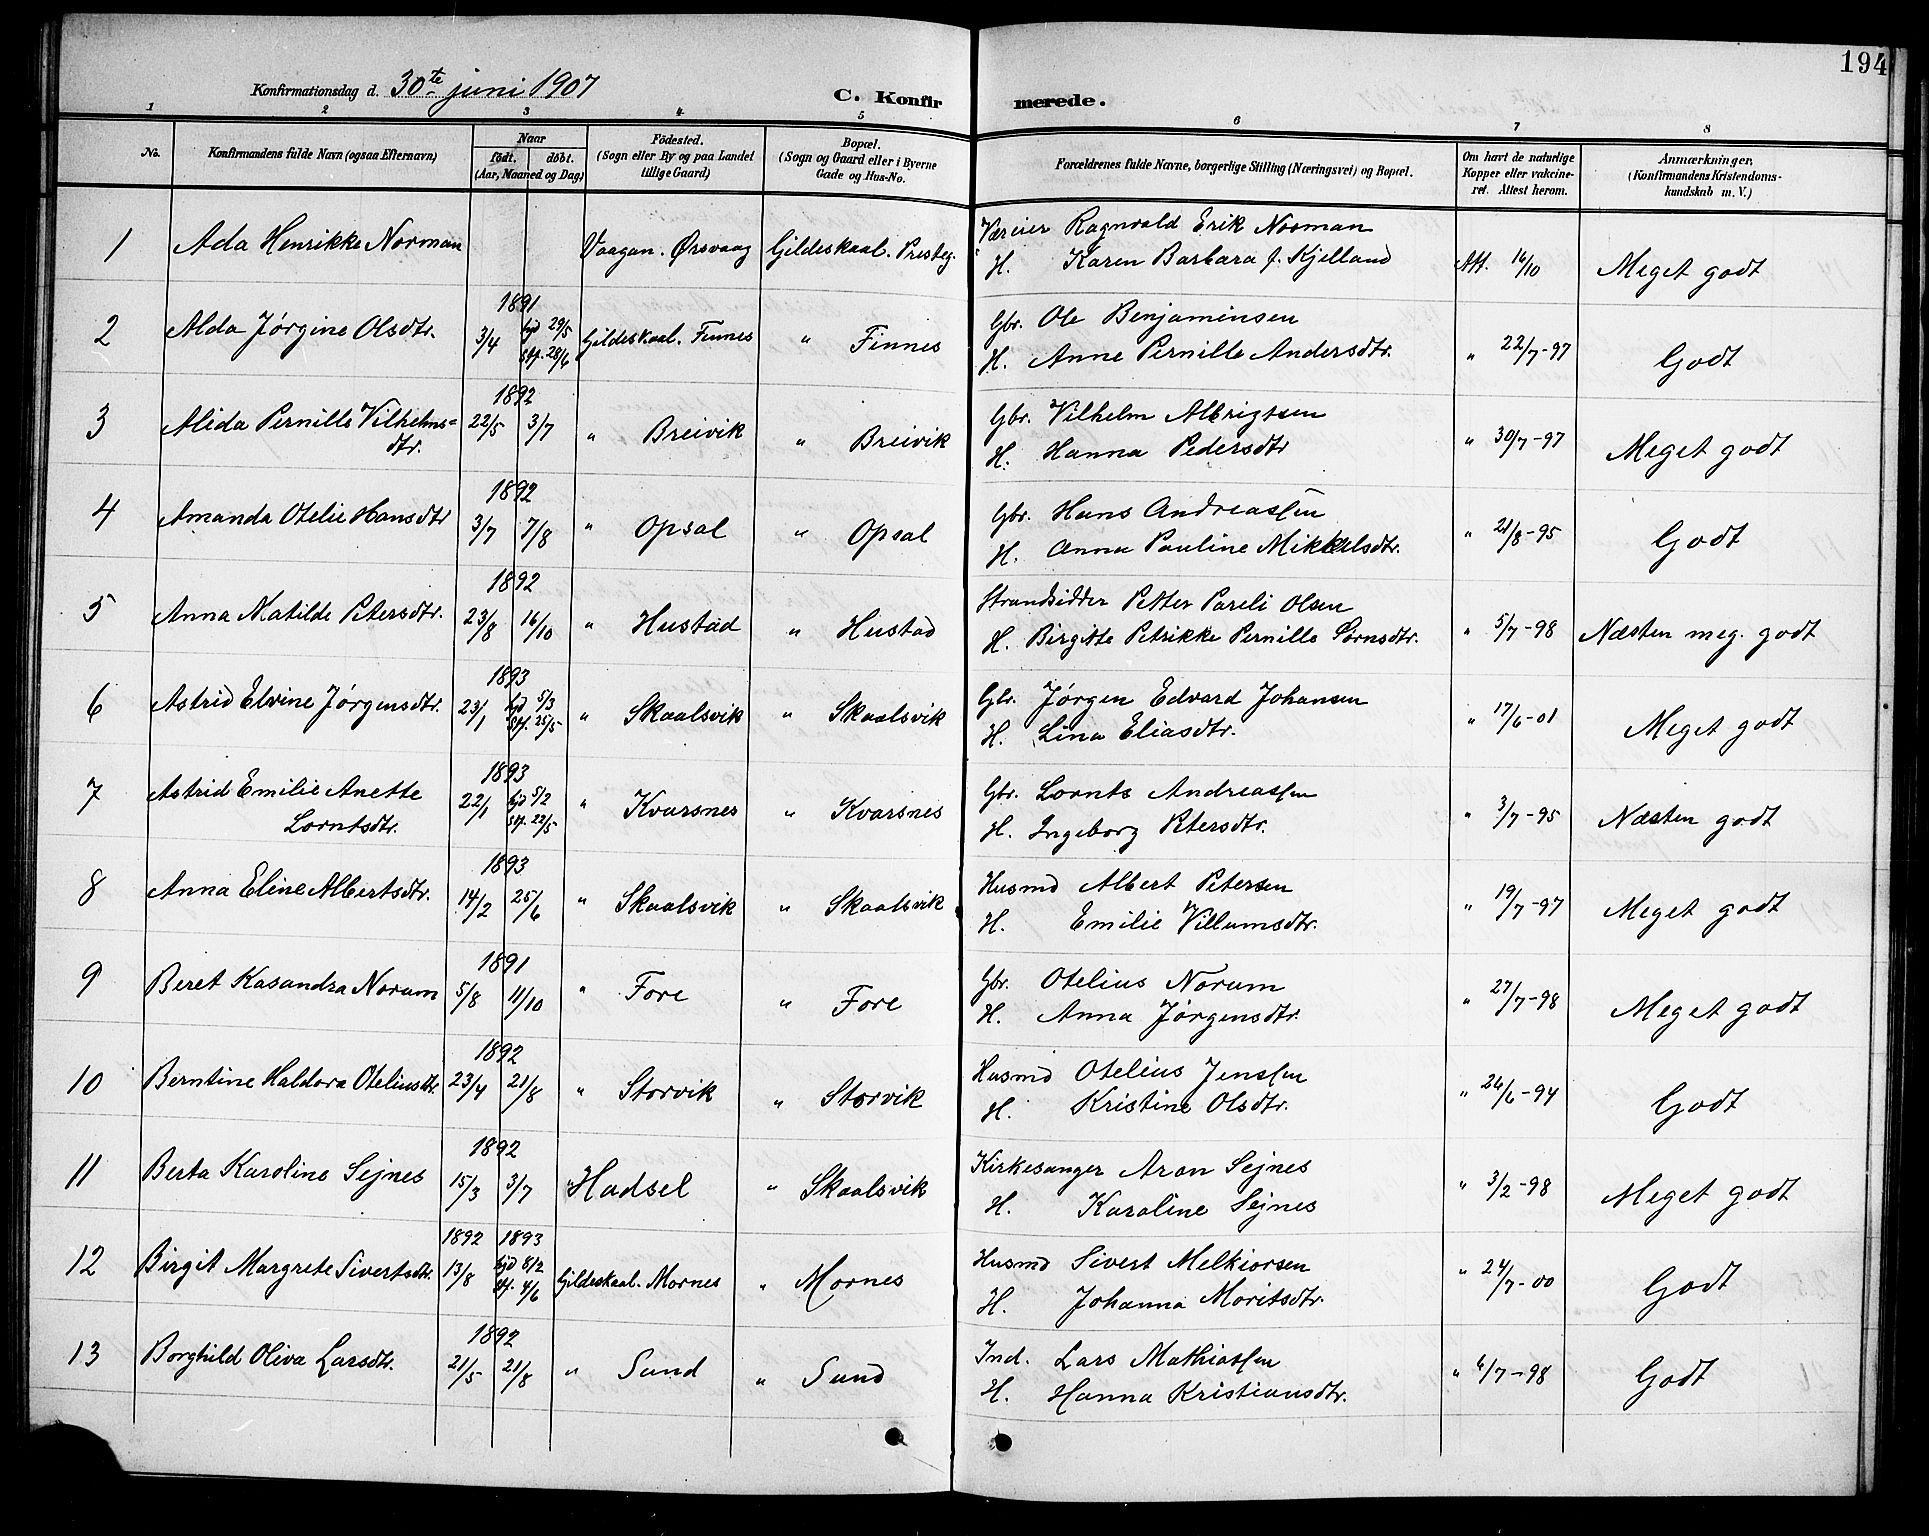 194
Konfirmationsdag d. 30te juni 1907
C. Konfirmerede.
1 2 3 4 5 6 7 8
No. Konfirmandens fulde Navn (ogsaa Efternavn) Naar født. døbt. (Aar, Maaned og Dag) Födested. (Sogn eller By og paa Landet tillige Gaard) Bopæl. (Sogn og Gaard eller i Byerne Gade og Hus-No. Forældrenes fulde Navne, borgerlige Stilling (Næringsvei) og Bopæl. Om havt de naturlige Kopper eller vakcineret. Attest herom. Anmærkninger. (Konfirmandens Kristendomskundskab m. V.)
1 Ada Henrikke Norman Vaagan. Ørsvaag Gildeskaal. Presteg. Væreier Ragnvald Erik Norman Att. 16/10 Meget godt
H. Karen Barbara f. Kjelland
1891
2 Alda Jørgine Olsdtr. 3/4 hjd 29/5 Gildeskaal. Finnes " Finnes Gbr. Ole Benjaminsen " 22/7-97 Godt
stf. 28/6 H. Anne Pernille Andersdtr.
1892
3 Alida Pernille Vilhelms= 22/5 3/7 " Breivik " Breivik Gbr. Vilhelm Albrigtsen " 30/7-97 Meget godt
dtr. H. Hanna Pedersdtr
1892
4 Amanda Otelie Hansdtr 3/7 7/8 " Opsal " Opsal Gbr. Hans Andreassen " 21/8-95 Godt
H. Anna Pauline Mikkelsdtr.
1892
5 Anna Matilde Petersdtr. 23/8 16/10 " Hustad " Hustad Strandsidder Petter Pareli Olsen " 5/7-98 Næsten meg. godt
H. Birgitte Petrikke Pernille Sørnsdtr.
1893
6 Astrid Elvine Jørgensdtr. 23/1 hjd 5/3 " Skaalsvik " Skaalsvik Gbr. Jørgen Edvard Johansen " 17/6-01 Meget godt
stf. 25/5 H. Lina Eliasdtr.
1893
7 Astrid Emilie Anette 22/1 hjd 5/2 " Kvarsnes " Kvarsnes Gbr. Lornts Andreassen " 3/7-95 Næsten godt
Lorntsdtr. stf. 22/5 H. Ingeborg Petersdtr.
1893
8 Anna Eline Albertsdtr. 14/2 25/6 " Skaalsvik " Skaalsvik Husmd Albert Petersen " 19/7-97 Meget godt
H. Emilie Villumsdtr.
1891
9 Beret Kasandra Norum 5/8 11/10 " Fore " Fore Gbr. Otelius Norum " 27/7-98 Meget godt
H. Anna Jørgensdtr.
1892
10 Berntine Haldora Oteliusdtr. 23/4 21/8 " Storvik " Storvik Husmd Otelius Jenssen " 26/6-94 Godt
H. Kristine Olsdtr.
1892
11 Berta Karoline Sejnes 15/3 3/7 " Hadsel " Skaalsvik Kirkesanger Aron Sejnes " 3/2-98 Meget godt
H. Karoline Sejnes
1892 1893
12 Birgit Margrete Sivertsdtr. 13/8 hjd 8/2 Gildeskaal. Mornes " Mornes Husmd Sivert Melkiorsen " 24/7-00 Godt
stf. 4/6 H. Johanna Moritsdtr.
1892
13 Borghild Oliva Larsdtr. 21/5 21/8 " Sund " Sund Ind. Lars Mathiassen " 6/7-98 Godt
H. Hanna Kristiansdtr.